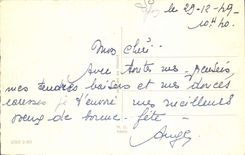 le 29-12-49.
10 h 40.
Mes chéri
Avec toutes mes pensées,
mes tendres baisers et mes douces
caresses je t'envoie mes meilleurs
voeux de bonne fête -
Ange